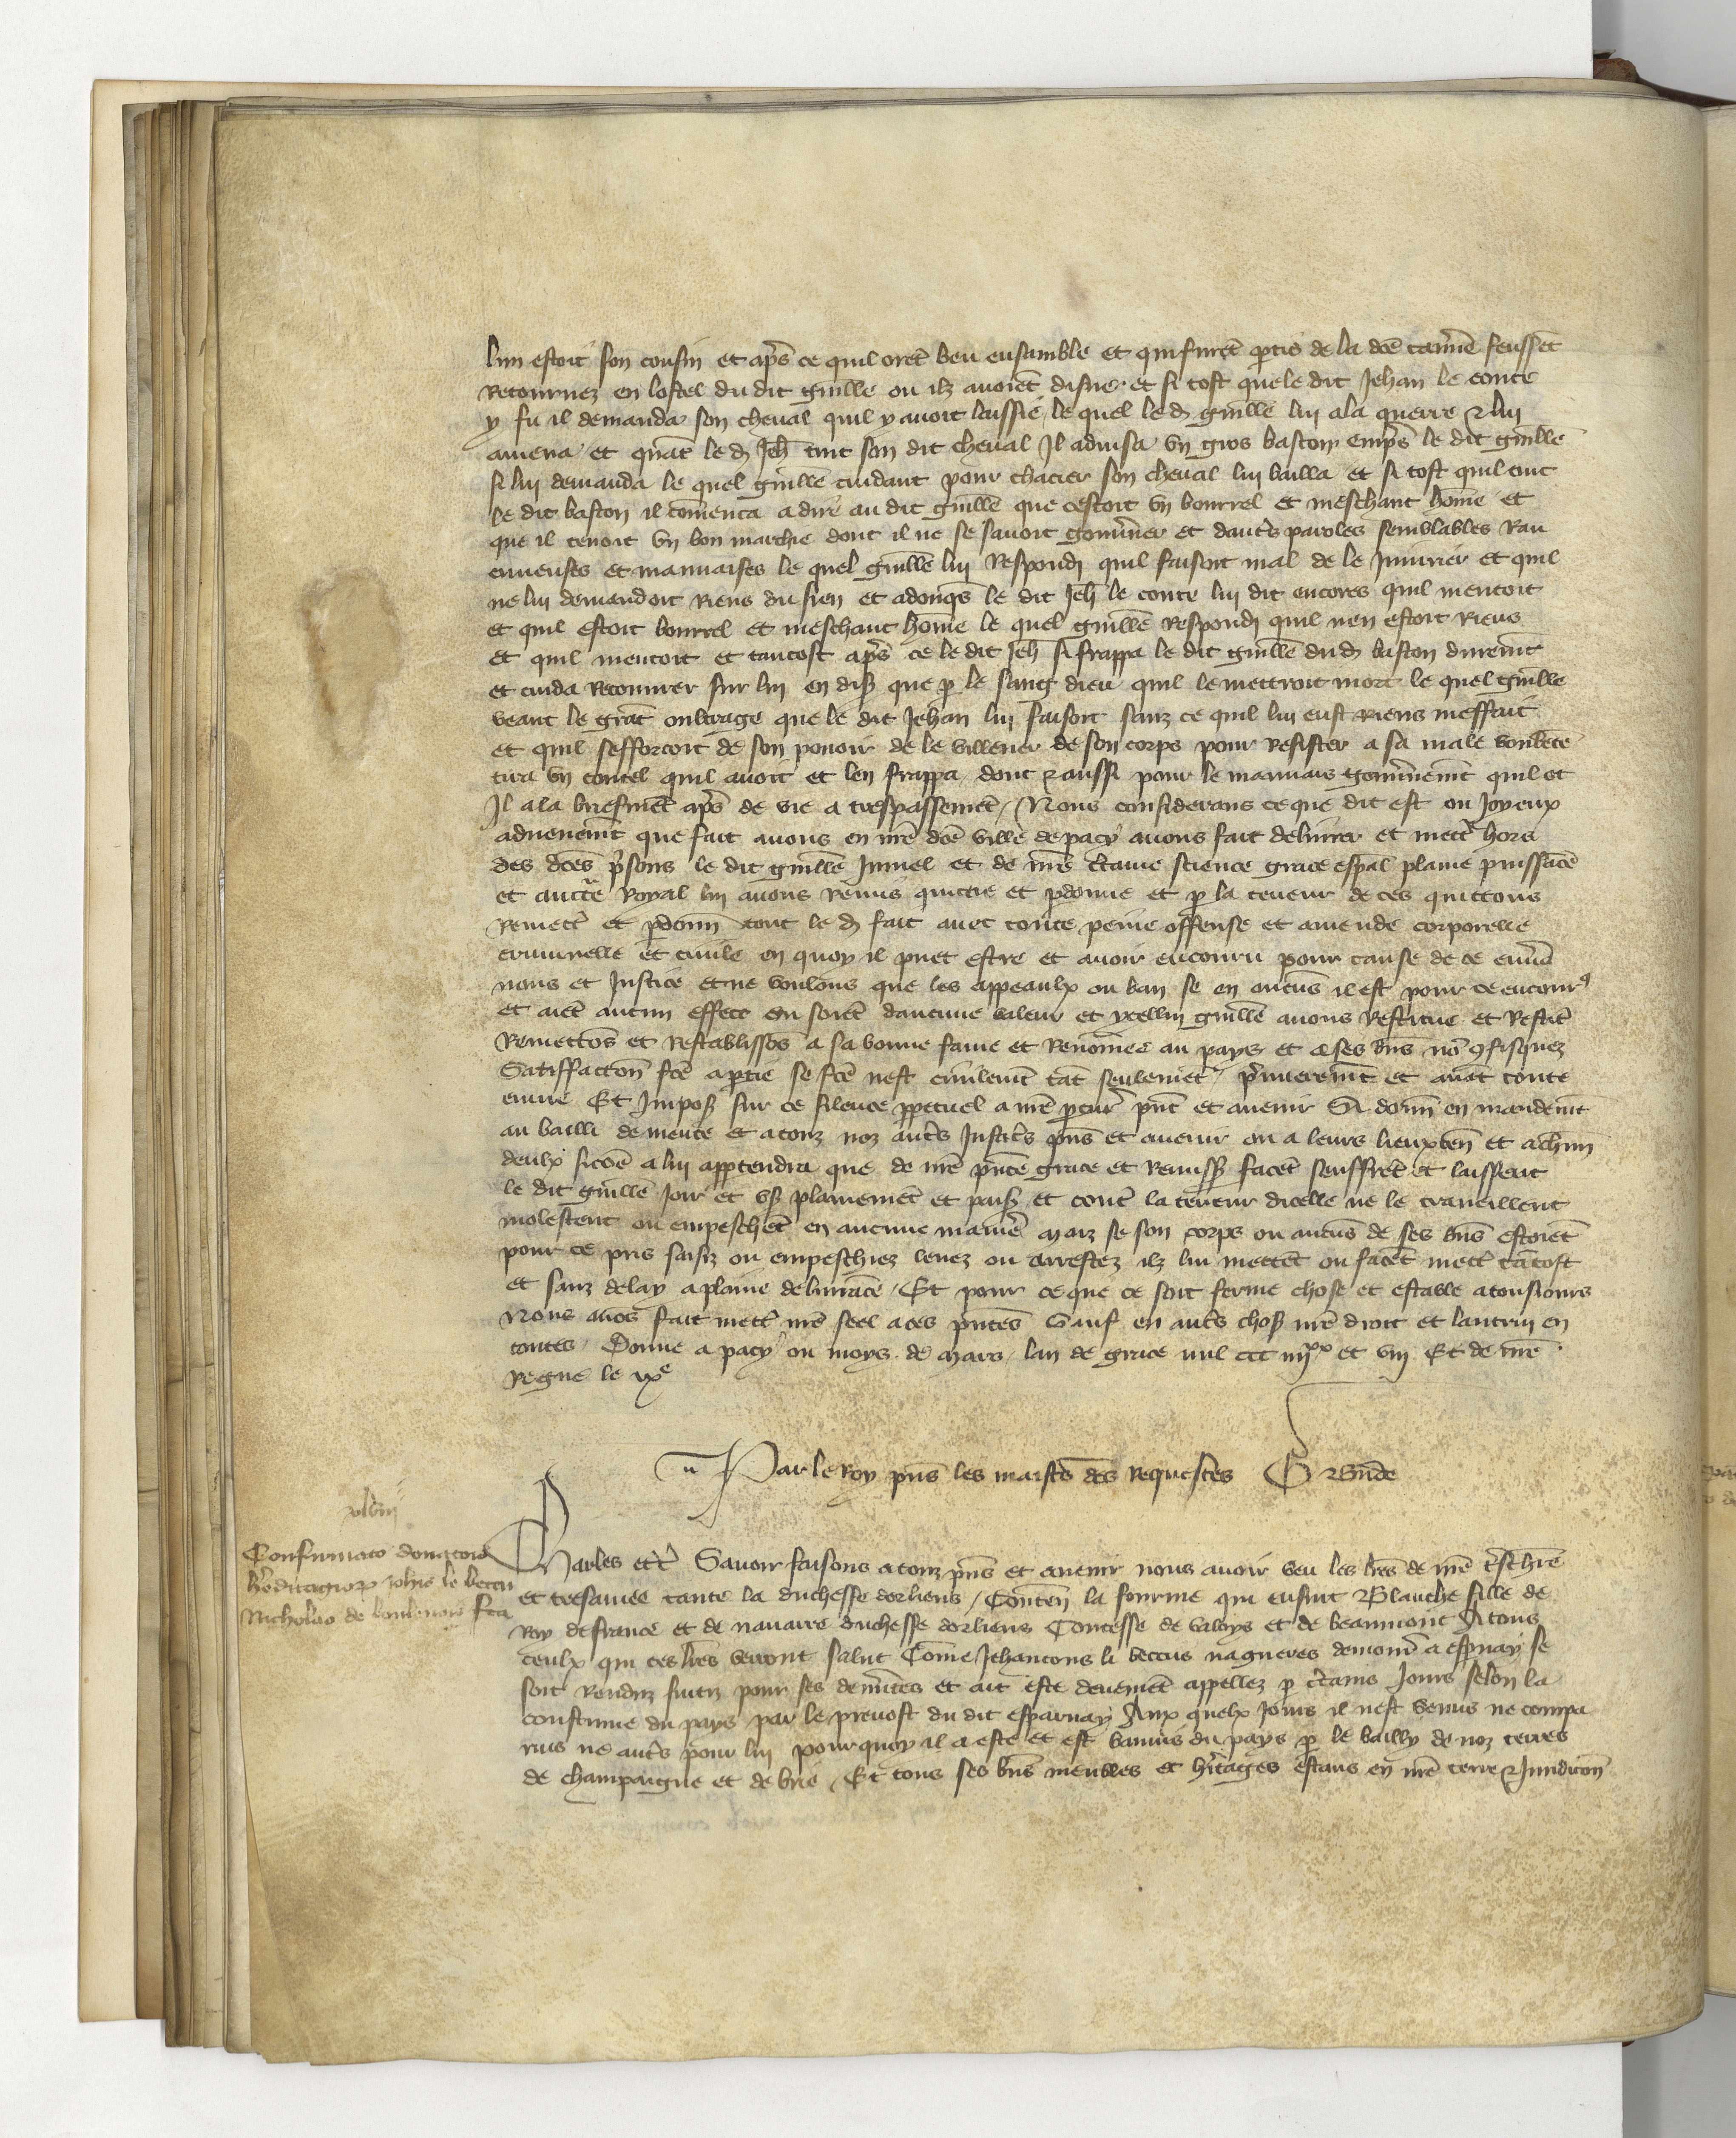 lun estoit son cousin et apͬs ce quil orēt beu ensamble et quil furēt ꝑtis de la dcē tavͬne feussēt
Retournez en lostel du dit guillē ou ilz avoiēt disner et si tost que le dit Jehan le conte
y fu il demanda son cheval quil y avoit laissie le quel le d. guillē lui ala querre ⁊ lui
amena et quāt le d. Jeh̄ tint son dit cheval Il advisa vn gros baston empͬs le dit guillē
si lui demanda le quel guillē cuidant pour chacier son cheval lui bailla et si tost quil tint
le dit baston il com̄enca a dire au dit guillē que cestoit vn bourrel et meschant hom̄e et
que il tenoit vn bon marchie dont il ne se savoit gouvͬner et dautͬs paroles semblables Ran
cuneuses et mauvaises le quel guillē lui Respondi quil faisoit mal de le Iniurier et quil
ne lui demandoit Riens du sien et adonqs̄ le dit Jeh̄ le conte lui dit encores quil mentoit
et quil estoit bourrel et meschant hom̄e le quel guillē Respondi quil nen estoit Riens
et quil mentoit et tantost apͬs ce le dit Jeh̄ si frappa le dit guillē du d. baston duremt̄
et cuida Recouvrer sur lui en dist̄ que ꝑ le sang dieu quil le mettroit mort le quel guillē
veant le grāt oultrage que le dit Jehan lui faisoit sanz ce quil lui eust Riens meffait
et quil sefforcoit de son povoir de le villener de son corps pour Resister a sa male voulēte
tira vn coutel quil avoit et len frappa dont ⁊ aussi pour le mauvais gouvͬnemt̄ quil ot
Il ala briefmēt apͬs de vie a trespassemēt / Nous considerans ce que dit est ou Joyeux
advenemt̄ que fait avons en nrē dcē ville de pacy avons fait delivrer et mettͬ hors
des dcēs pͬsons le dit guillē Juuel et de nrē cͬtaine science grace espāl plaine puissācē
et auctͬe Royal lui avons Remis quictie et ꝑdonne et ꝑ la teneur de ces quictons
Remetͭ et ꝑdonn̄ tout le d. fait avec toute peine offense et amende corporelle
criminelle et civile en quoy il puet estre et avoir encouru pour cause de ce envͬs
nous et Justice et ne voulons que les appeaulx ou ban se en aucūs il est pour ce encouru
et aiēt aucun effect ou soiēt daucune valeur et ycellui guillē avons Restitue et Restitͭ
Remettōs et Restablissōs a sa bonne fame et Renōmee au pays et a ses bn̄s nō ꝯfisquez
Satiffaccōn fcē a ꝑtie se fcē nest civilemt̄ tāt seulemēt pͬmieremt̄ et avāt toute
euvre Et Impost̄ sur ce silence ꝑpetuel a nrē ꝓcurͬ pn̄t et avenir Si donn̄ en mandemt̄
au bailli de mente et a touz noz autͬs Justicͬs pn̄s et avenir ou a leurs lieuxten̄ et a chūn
deulx sicōe a lui appartendra que de nrē pn̄te grace et Remissͬ facēt seuffrēt et laissent
le dit guillē Joir et vser plainemēt et paisͬ et contͬ la teneur dicelle ne le traveillent
molestent ou empeschēt en aucune maniere maiz se son corps ou aucūs de ses bn̄s estoiēt
pour ce pris saisiz ou empeschiez levez ou arrestez ilz lui mettēt ou facēt mettͬ tātost
et sanz delay a plaine delivrāce / Et pour ce que ce soit ferme chose et estable a tousiours
Nous avōs fait mettͬ nrē seel a ces pn̄tes Sauf en autͬs chosͬ nrē droit et lautruy en
toutes / Donne a pacy ou moys de mars / lan de grace mil ccc iiijˣˣ et viij Et de nrē
Regne le ixᵉ
Par le Roy pn̄s les maistͬs des Requestes
xlviij
Confirmatio donacōīs
hͬeditagiorꝝ Johīs le beccu
Nicholao de
fcā
Charles etͨ Savoir faisons a touz pn̄s et avenir nous avoir veu les lrēs de nrē tͬschiere
et tresamee tante la duchesse dorliens / Conten̄ la fourme qui ensuit Blanche fille de
Roy de france et de navarre duchesse dorliens Contesse de valoys et de beaumont A tous
ceulx qui ces lrēs verront Salut Cōme Jehancons li beccus nagueres demourͬ a espnay se
soit Renduz fuitiz pour ses demͬites et ait este deuemēt appellez ꝑ cͬtains Jours selon la
coustume du pays par le prevost du dit esparnay Aux quelx Jours il nest venus ne compa
rus ne autͬs pour lui pourquoy il a este et est bannis du pays ꝑ le bailly de noz terres
de champaigne et de brie / Et tous ses bn̄s meubles et hͬitages estans en nrē terre ⁊ Juridicōn